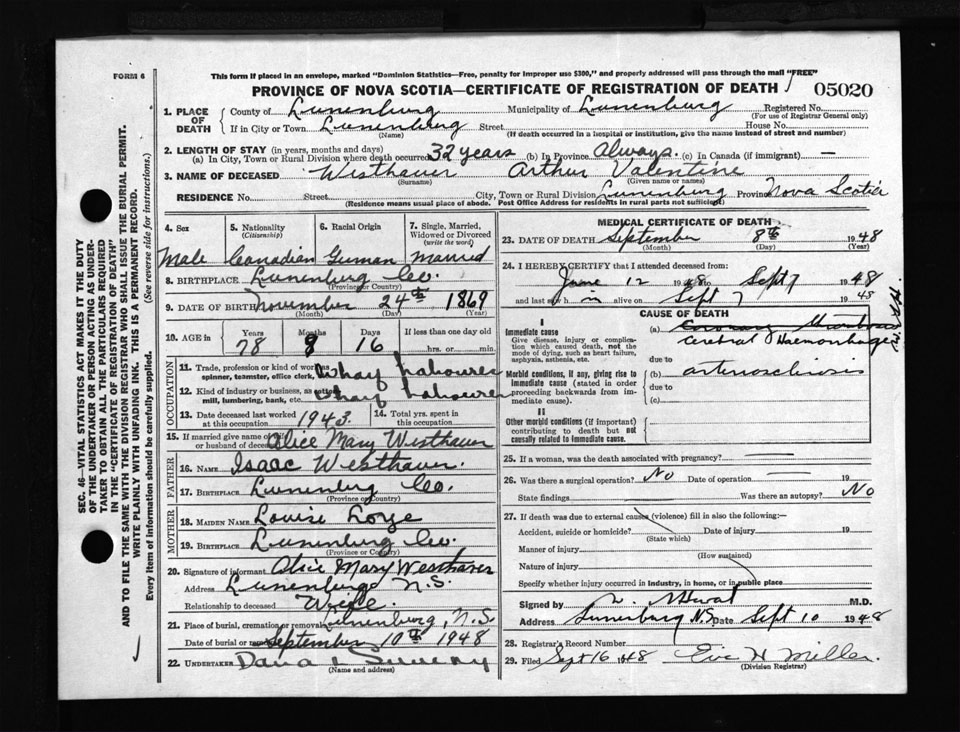 FORM 6
This form if placed in an envelope, marked "Dominion Statistics—Free, penalty for improper use $300," and properly addressed will pass through the mail "FREE"
PROVINCE OF NOVA SCOTIA—CERTIFICATE OF REGISTRATION OF DEATH
05020
1. PLACE OF DEATH
County of Lunenburg Municipality of Lunenburg Registered No.
(For use of Registrar General only)
If in City or Town Lunenburg Street House No.
(Name) (If death occurred in a hospital or institution, give the name instead of street and number)
2. LENGTH OF STAY (in years, months and days)
(a) In City, Town or Rural Division where death occurred 32 years (b) In Province Always. (c) In Canada (if immigrant) —
3. NAME OF DECEASED Westhaver Arthur Valentine
(Surname) (Given name or names)
RESIDENCE No. Street City, Town or Rural Division Lunenburg Province Nova Scotia
(Residence means usual place of abode. Post Office Address for residents in rural parts not sufficient)
4. Sex 5. Nationality (Citizenship) 6. Racial Origin 7. Single, Married, Widowed or Divorced (write the word)
Male Canadian German Married
8. BIRTHPLACE Lunenburg Co.
(Province or Country)
9. DATE OF BIRTH November 24th 1869
(Month) (Day) (Year)
10. AGE in Years Months Days If less than one day old
78 9 16 hrs. or min.
OCCUPATION
11. Trade, profession or kind of work as spinner, teamster, office clerk, Wharf Labourer
12. Kind of industry or business, as cotton mill, lumbering, bank, etc. Wharf Labourer
13. Date deceased last worked at this occupation 1943. 14. Total yrs. spent in this occupation
15. If married give name of wife or husband of deceased Alice Mary Westhaver
FATHER
16. NAME Isaac Westhaver.
17. BIRTHPLACE Lunenburg Co.
(Province or Country)
MOTHER
18. MAIDEN NAME Louise
19. BIRTHPLACE Lunenburg Co.
(Province or Country)
20. Signature of informant Alice Mary Westhaver
Address Lunenburg N.S.
Relationship to deceased Wife.
21. Place of burial, cremation or removal Lunenburg, N.S.
Date of burial or September 10th 1948
22. UNDERTAKER Dana L Sweeny
(Name and address)
MEDICAL CERTIFICATE OF DEATH
23. DATE OF DEATH September 8th 1948
(Month) (Day) (Year)
24. I HEREBY CERTIFY that I attended deceased from:
June 12 1948 to Sept 7 1948
and last saw h im alive on Sept 7 1948
CAUSE OF DEATH
I
Immediate cause
Give disease, injury or complication which caused death, not the mode of dying, such as heart failure, asphyxia, asthenia, etc.
(a) Coronary Thrombosis
Cerebral Haemorrhage
due to
Morbid conditions, if any, giving rise to immediate cause (stated in order proceeding backwards from immediate cause).
(b) arteriosclerosis
due to
(c)
II
Other morbid conditions (if important) contributing to death but not causally related to immediate cause.
25. If a woman, was the death associated with pregnancy? —
26. Was there a surgical operation? No Date of operation 19
State findings Was there an autopsy? No
27. If death was due to external causes (violence) fill in also the following:—
Accident, suicide or homicide? Date of injury 19
(State which)
Manner of injury
(How sustained)
Nature of injury
Specify whether injury occurred in industry, in home, or in public place
Signed by M.D.
Address Lunenburg N.S. Date Sept 10 1948
28. Registrar's Record Number
29. Filed Sept 16 1948 H Miller.
(Division Registrar)
SEC. 46—VITAL STATISTICS ACT MAKES IT THE DUTY
OF THE UNDERTAKER OR PERSON ACTING AS UNDERTAKER
TO OBTAIN ALL THE PARTICULARS REQUIRED
IN THE "CERTIFICATE OF REGISTRATION OF DEATH"
AND TO FILE THE SAME WITH THE DIVISION REGISTRAR WHO SHALL ISSUE THE BURIAL PERMIT.
WRITE PLAINLY WITH UNFADING INK. THIS IS A PERMANENT RECORD.
Every item of information should be carefully supplied. (See reverse side for instructions.)